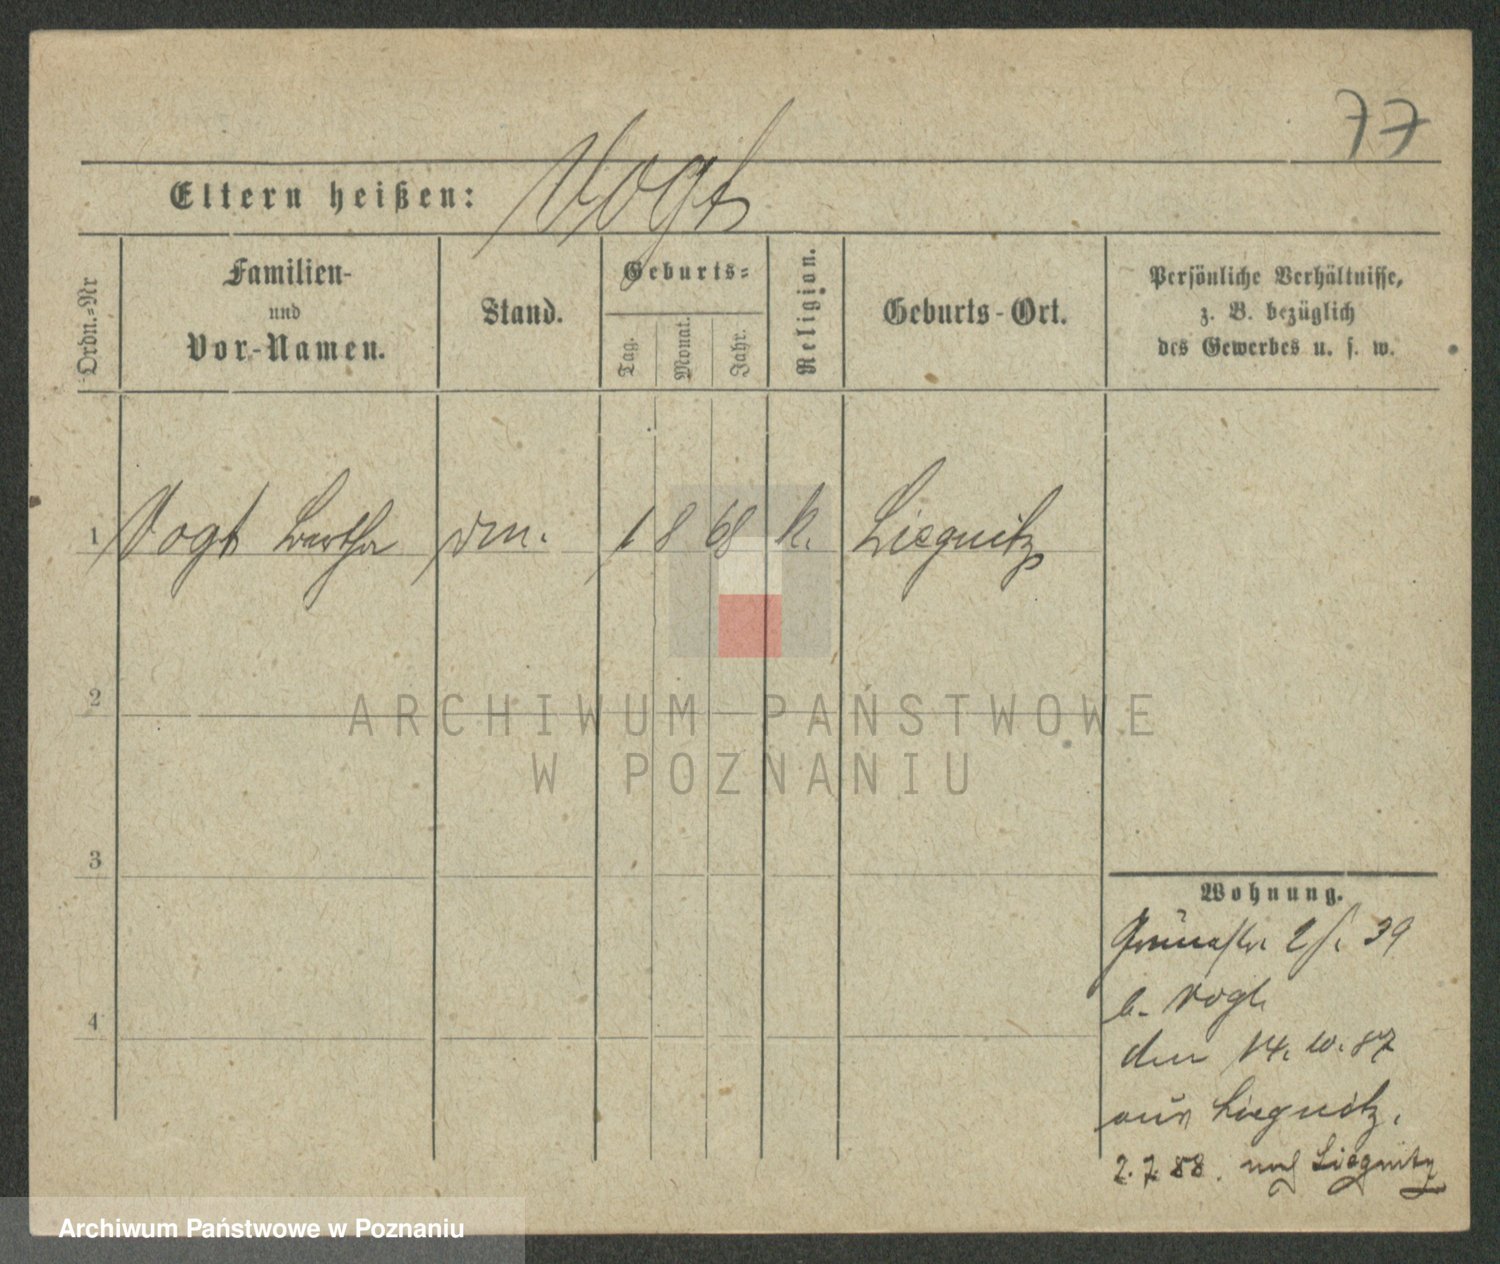 77
Eltern heißen: Vogt
Ordn.=Nr
Familien-
und
Vor-Namen.
Stand.
Geburts=
Tag.
Monat.
Jahr.
Religion.
Geburts-Ort.
Persönliche Verhältnisse,
z. B. bezüglich
des Gewerbes u. s. w.
1 Vogt Bertha 1 8 68 k. Liegnitz
2
ARCHIWUM PAŃSTWOWE
W POZNANIU
3
4
Wohnung.
39
b. Vogt
den 14. 10. 87
aus Liegnitz.
2. 7. 88. nach Liegnitz
Archiwum Państwowe w Poznaniu